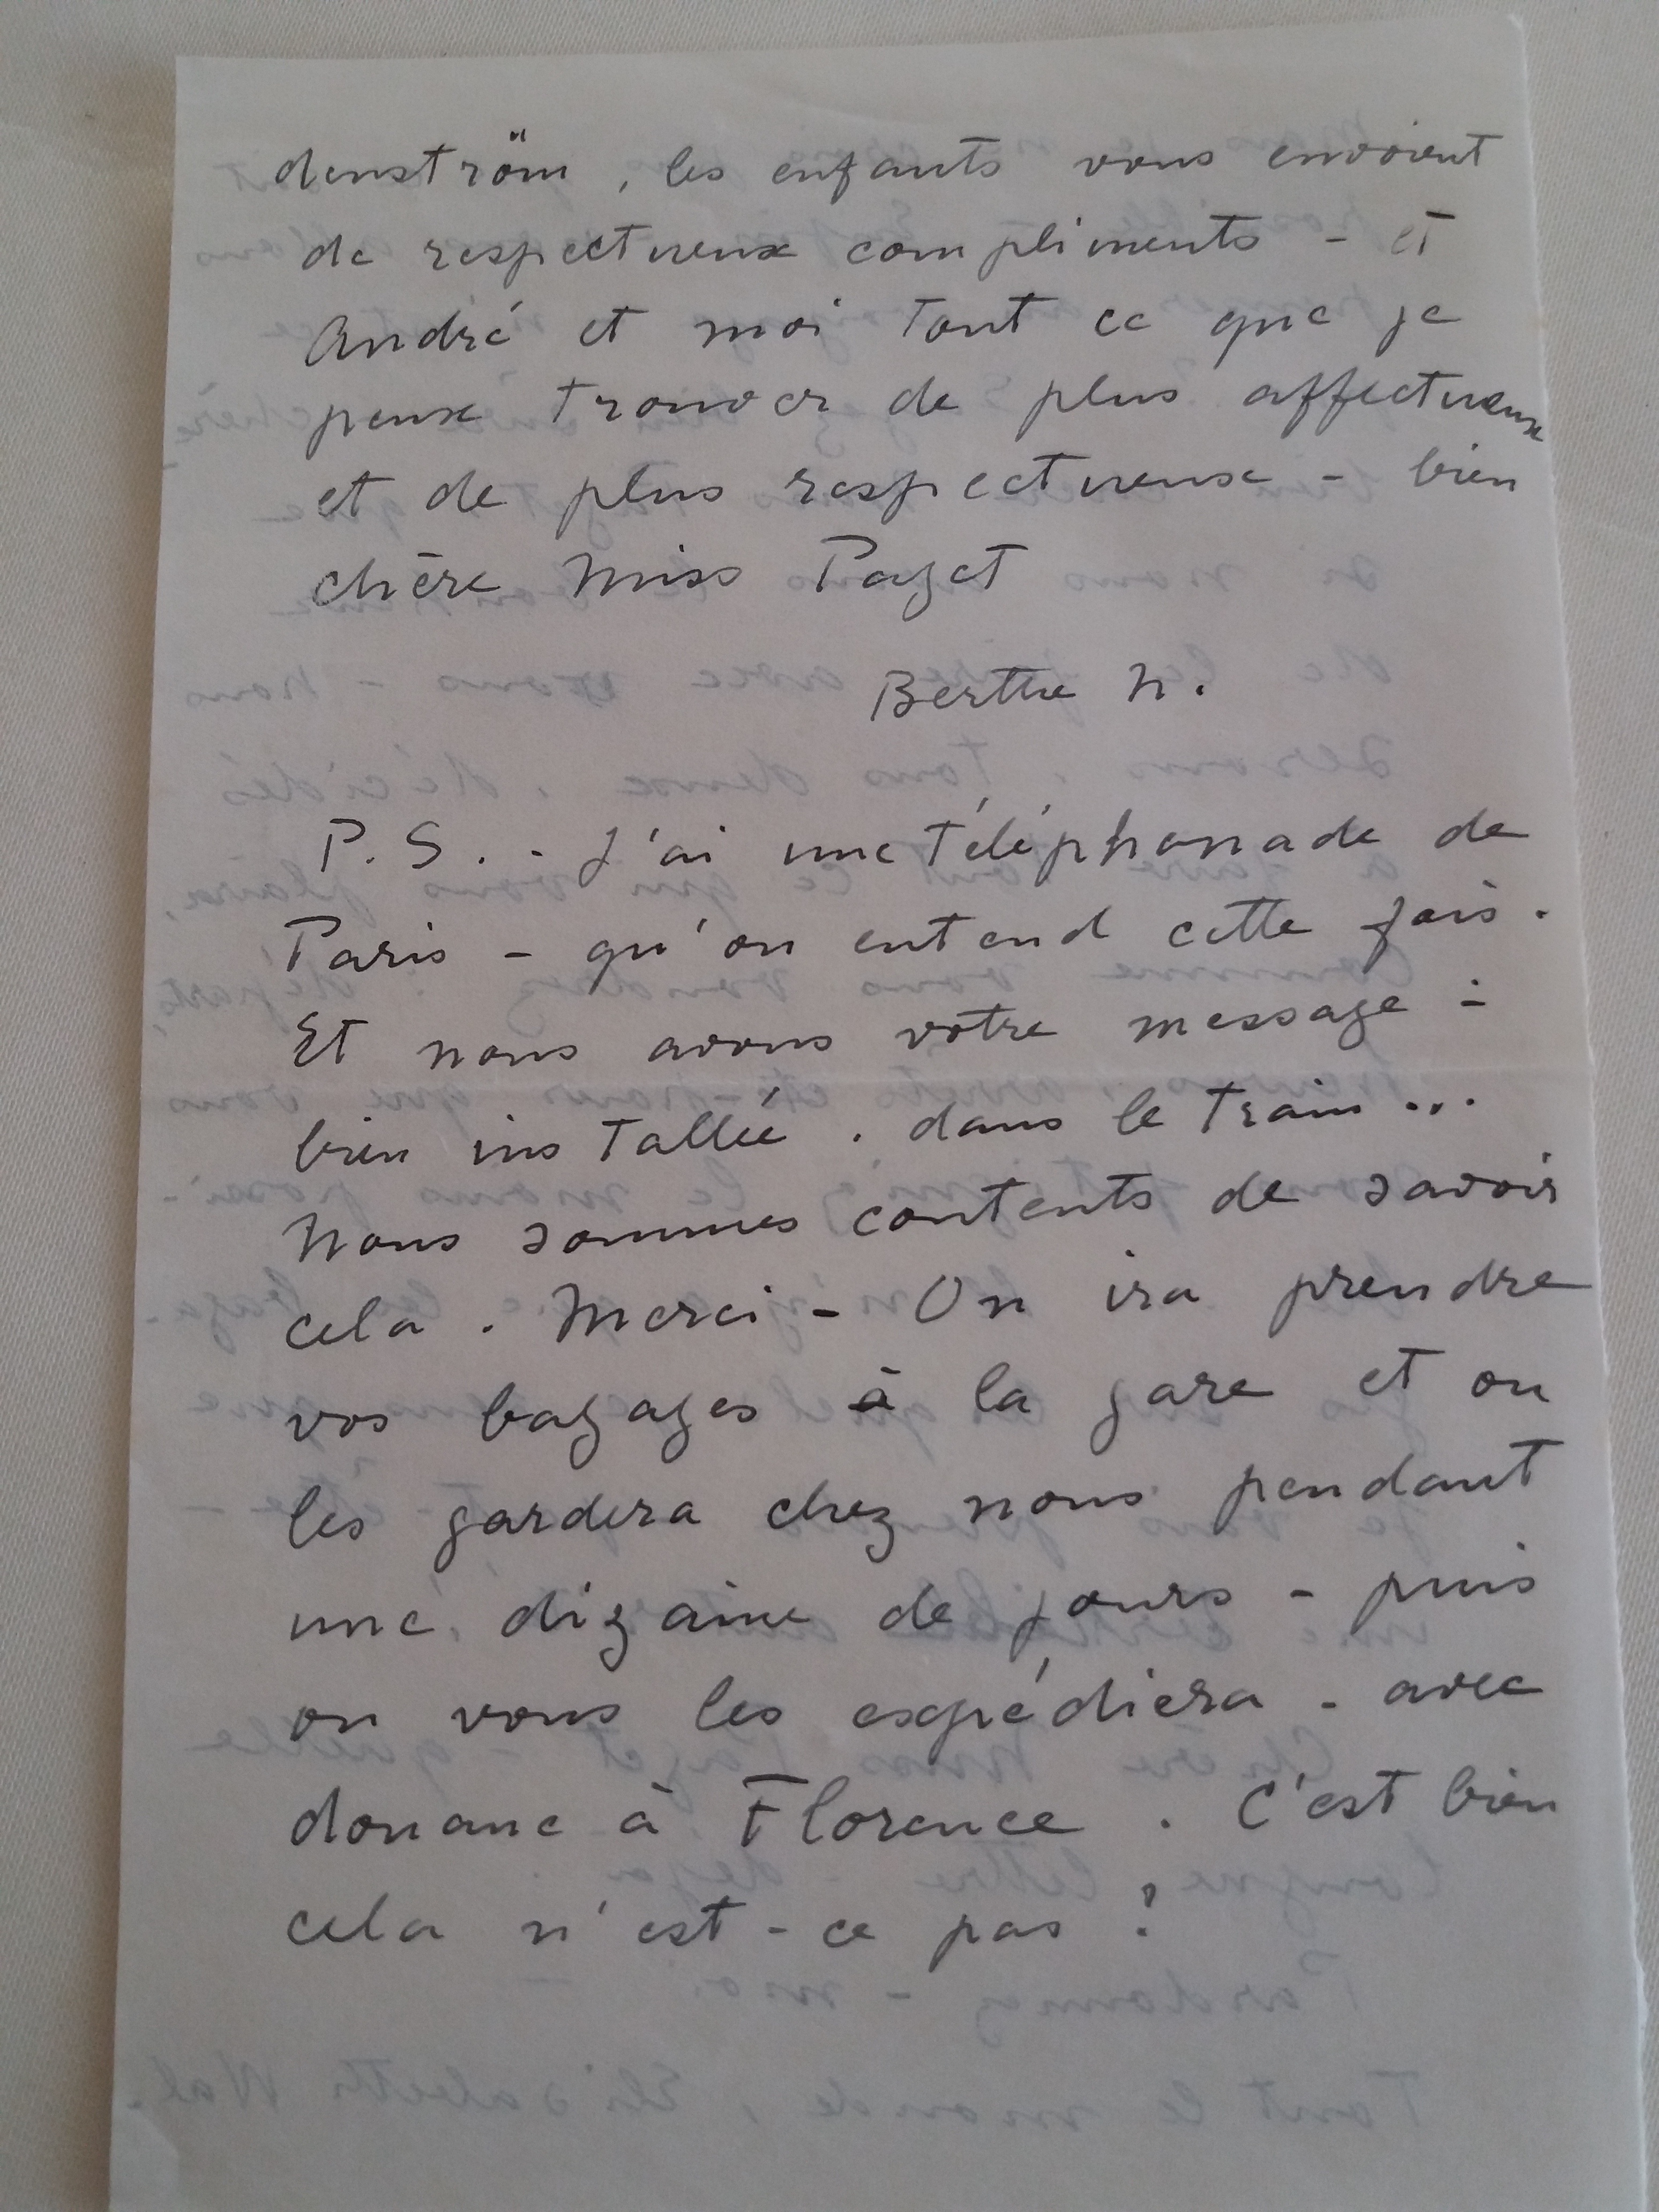 denström, les enfants vous envoient
de respectueux compliments - et
André et moi tout ce que je
peux trouver de plus affectueux
et de plus respectueux - bien
chère Miss Paget
Berthe N.
P. S. - J'ai une téléphonade de
Paris - qu'on entend cette fois.
Et nous avons votre message :
bien installée. dans le train...
Nous sommes contents de savoir
cela. Merci - On ira prendre
vos bagages à la gare et on
les gardera chez nous pendant
une dizaine de jours - puis
on vous les expédiera - avec
douane à Florence. C'est bien
cela n'est-ce pas ?